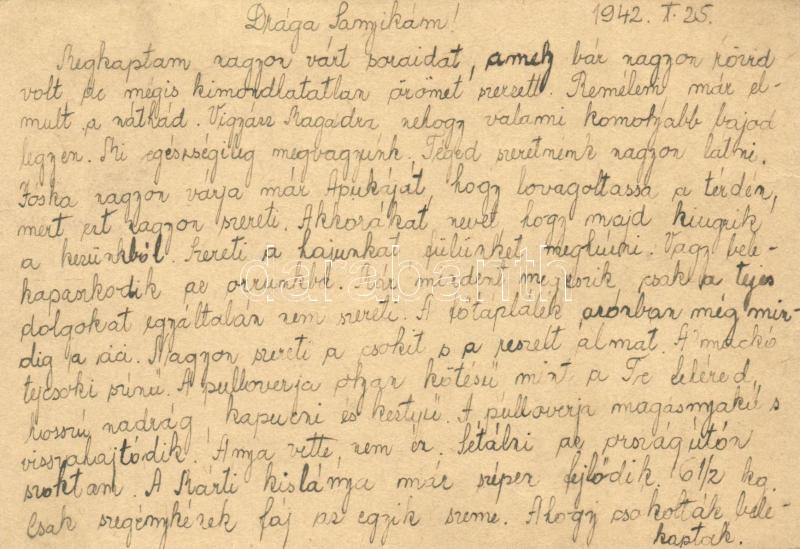 Drága Sanyikám! 1942. X. 25.
Megkaptam nagyon várt soraidat, amely bár nagyon rövid
volt de mégis kimondlatatlan örömet szerzett. Remélem már el-
mult a náthád. Vigyázz Magadra nehogy valami komolyabb bajod
legyen. Mi egészségileg megvagyunk. Téged szeretnénk nagyon látni.
Jóska nagyon várja már Apukáját, hogy lovagoltassa a térdén,
mert ezt nagyon szereti. Akkorákat nevet hogy majd kiugrik
a kezünkből. Szereti a hajunkat fülünket meghúzni. Vagy bele-
kapaszkodik az orrunkba. Már mindent megeszik, csak a tejes
dolgokat egyáltalán nem szereti. A főtáplálék azonban még min-
dig a cici. Nagyon szereti a csokit s a reszelt almát. A mackó
tejcsoki színű. A pulloverja olyan kötésű mint a Te fehéred,
hosszú nadrág, kapucni és kesztyű. A pulloverja magasnyakú s
visszahajtódik. Anya vette, nem én. Sétálni az országúton
szoktam. A Márti kislánya már szépen fejlődik. 6 1/2 kg.
Csak szegénykének fáj az egyik szeme. Ahogy csókolták bele-
kaptak.
darabanth